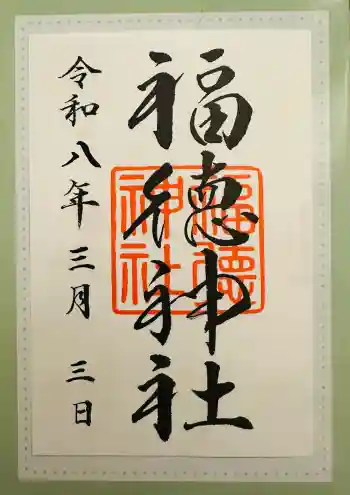 福徳神社
福德神社
令和八年三月三日